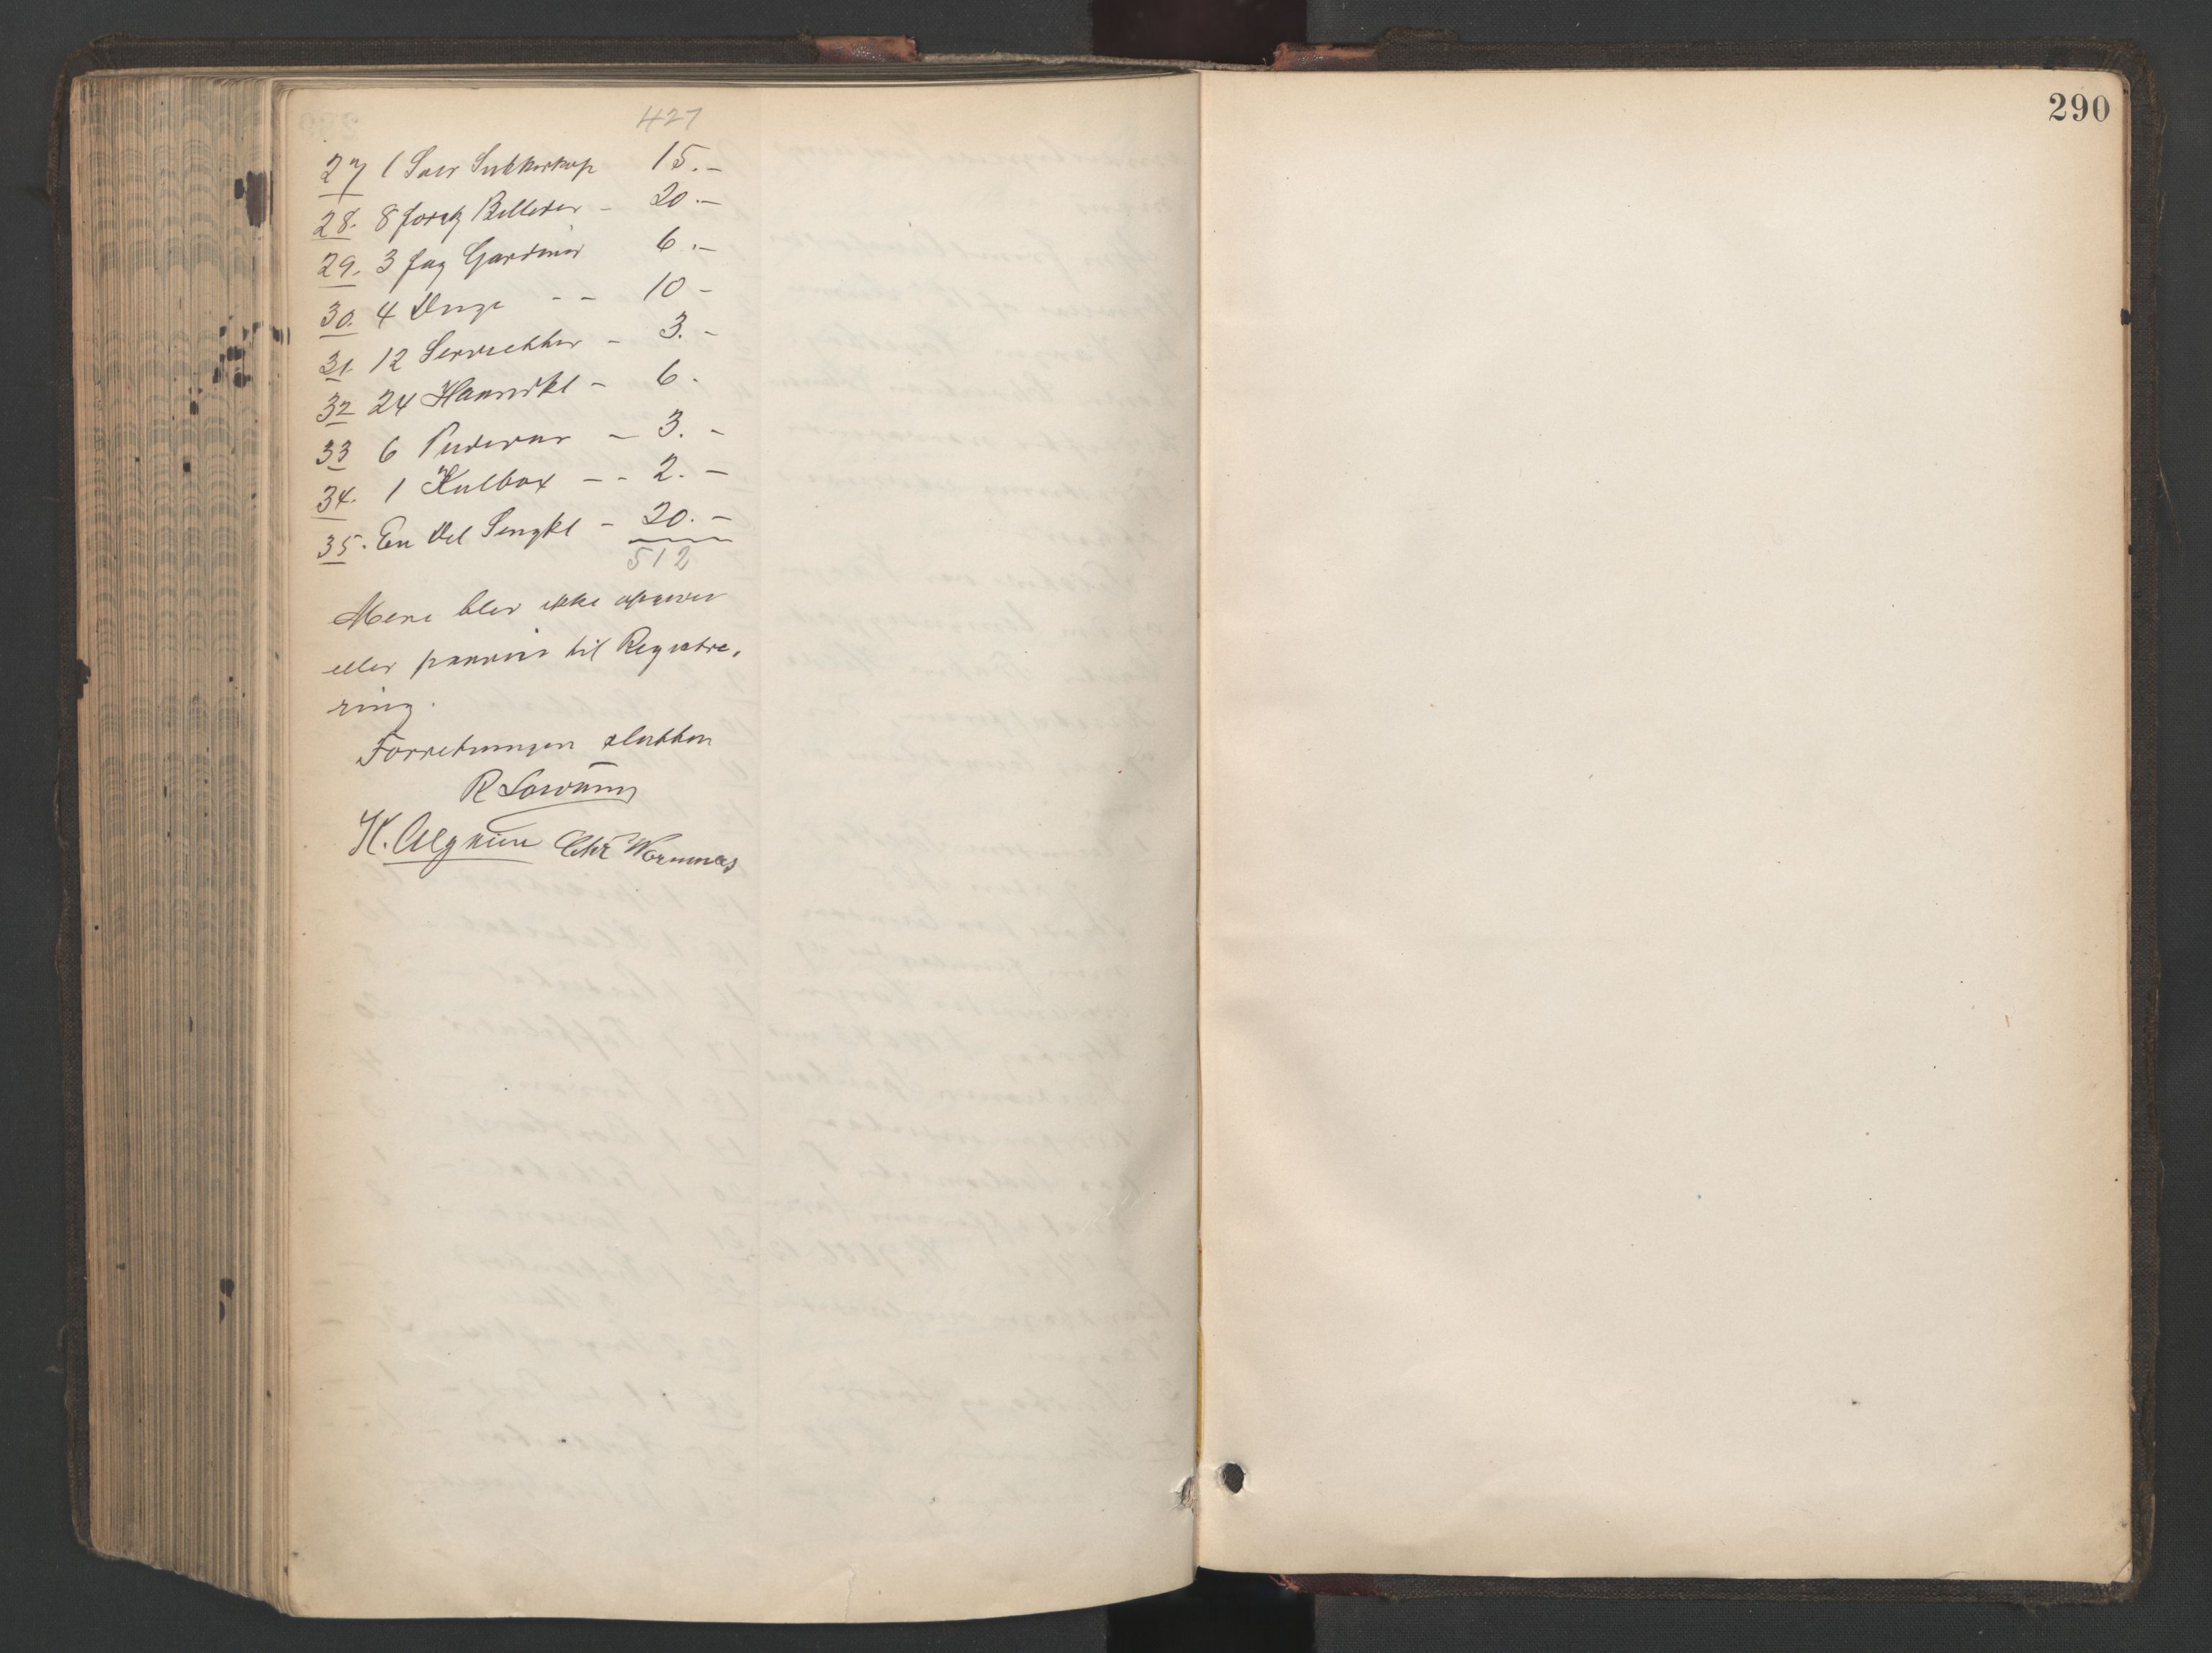 427
27 1 Sølv Sukkerkop 15.-
28. 8 forskj Billeder - 20.-
29. 3 fag Gardiner 6.-
30. 4 Duge - - 10 -
31. 12 Servietter - 3. -
32 24 Haandkl - 6.
33 6 Pudevar - 3. -
34. 1 Kulbox - - 2. -
35. En Del Sengkl - 20. -
512
Mere blev ikke opgivet
eller paavist til Registre,
ring.
Forretningen sluttet
R
H. Chr
290